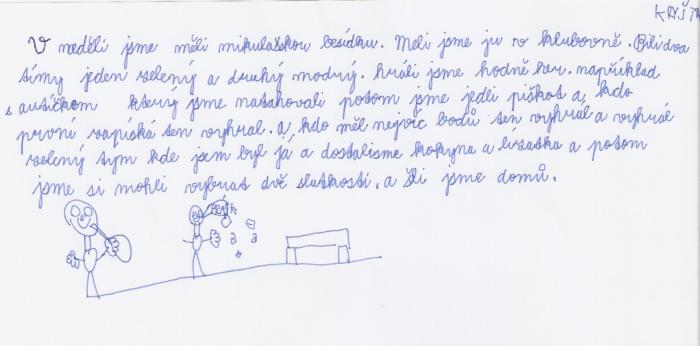 KRYŠT
V neděli jsme měli mikulášskou besídku. Meli jsme ju v klubovně. Bili dva
tímy jeden zelený a druhý modrý. hráli jsme hodně her. například
s autíčkem který jsme natahovali potom jsme jedli piškot a, kdo
první zapíská ten vyhral. a, kdo měl nejvíc bodů ten vyhrál a vyhrál
zelený tým kde jsem byl já a dostalisme kokyna a lízatka a potom
jsme si mohli vybrat dvě sladkosti. a šli jsme domů.